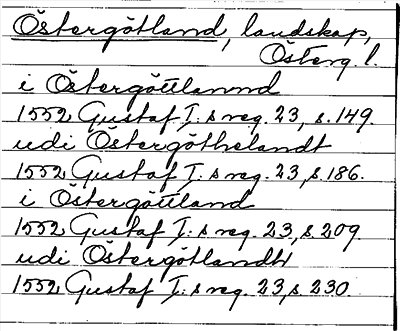 Östergötland, landskap,
Österg. l.
i Östergöttlannd
1552 Gustaf I:s reg. 23, s. 149.
udi Östergöthelandt
1552 Gustaf I:s reg. 23, s. 186.
i Östergöttland
1552 Gustaf I:s reg. 23, s. 209
udi Östergötlandh
1552 Gustaf I:s reg. 23, s. 230